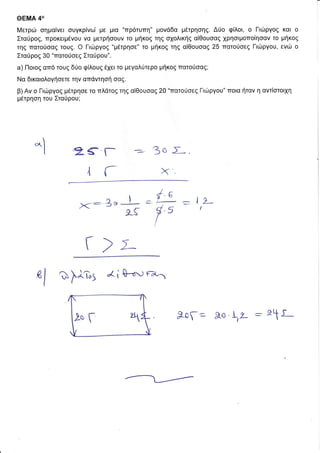 ΘΕΜΑ 4º
Μετρώ σημαίνει συγκρίνω με μια "πρότυπη" μονάδα μέτρησης. Δύο φίλοι, ο Γιώργος και ο
Σταύρος, προκειμένου να μετρήσουν το μήκος της σχολικής αίθουσας χρησιμοποίησαν το μήκος
της πατούσας τους. Ο Γιώργος "μέτρησε" το μήκος της αίθουσας 25 πατούσες Γιώργου, ενώ ο
Σταύρος 30 "πατούσες Σταύρου".
α) Ποιος από τους δύο φίλους έχει το μεγαλύτερο μήκος πατούσας;
Να δικαιολογήσετε την απάντησή σας.
β) Αν ο Γιώργος μέτρησε το πλάτος της αίθουσας 20 "πατούσες Γιώργου" ποια ήταν η αντίστοιχη
μέτρηση του Σταύρου;
α) 25 Γ = 30 Σ.
1 Γ x.
x = 30 1/25 = 5·6/5·5 = 1,2
Γ > Σ
β) Πλάτος αίθουσας
20 Γ 24 Σ. 20Γ = 20·1,2 = 24 Σ